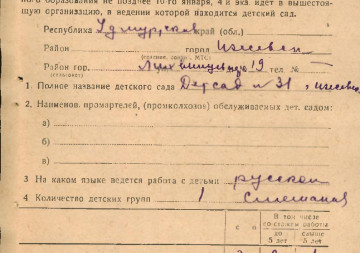 ного образования не позднее 10-го января, 4 й экз. идет в вышестоя-
щую организацию, в ведении которой находится детский сад.
Республика Удмуртская край (обл.)
Район город Ижевск
(сельский, свекл., МТС)
Район гор. 19 тел №
1. Полное название детского сада Детсад № 31, г. Ижевск
2. Наименов. промартелей, (промколхозов) обслуживаемых дет. садом:
а)
б)
в)
3 На каком языке ведется работа с детьми русском
4 Количество детских групп 1
В том числе
со стажем работы
до 5 лет
свыше 5 лет